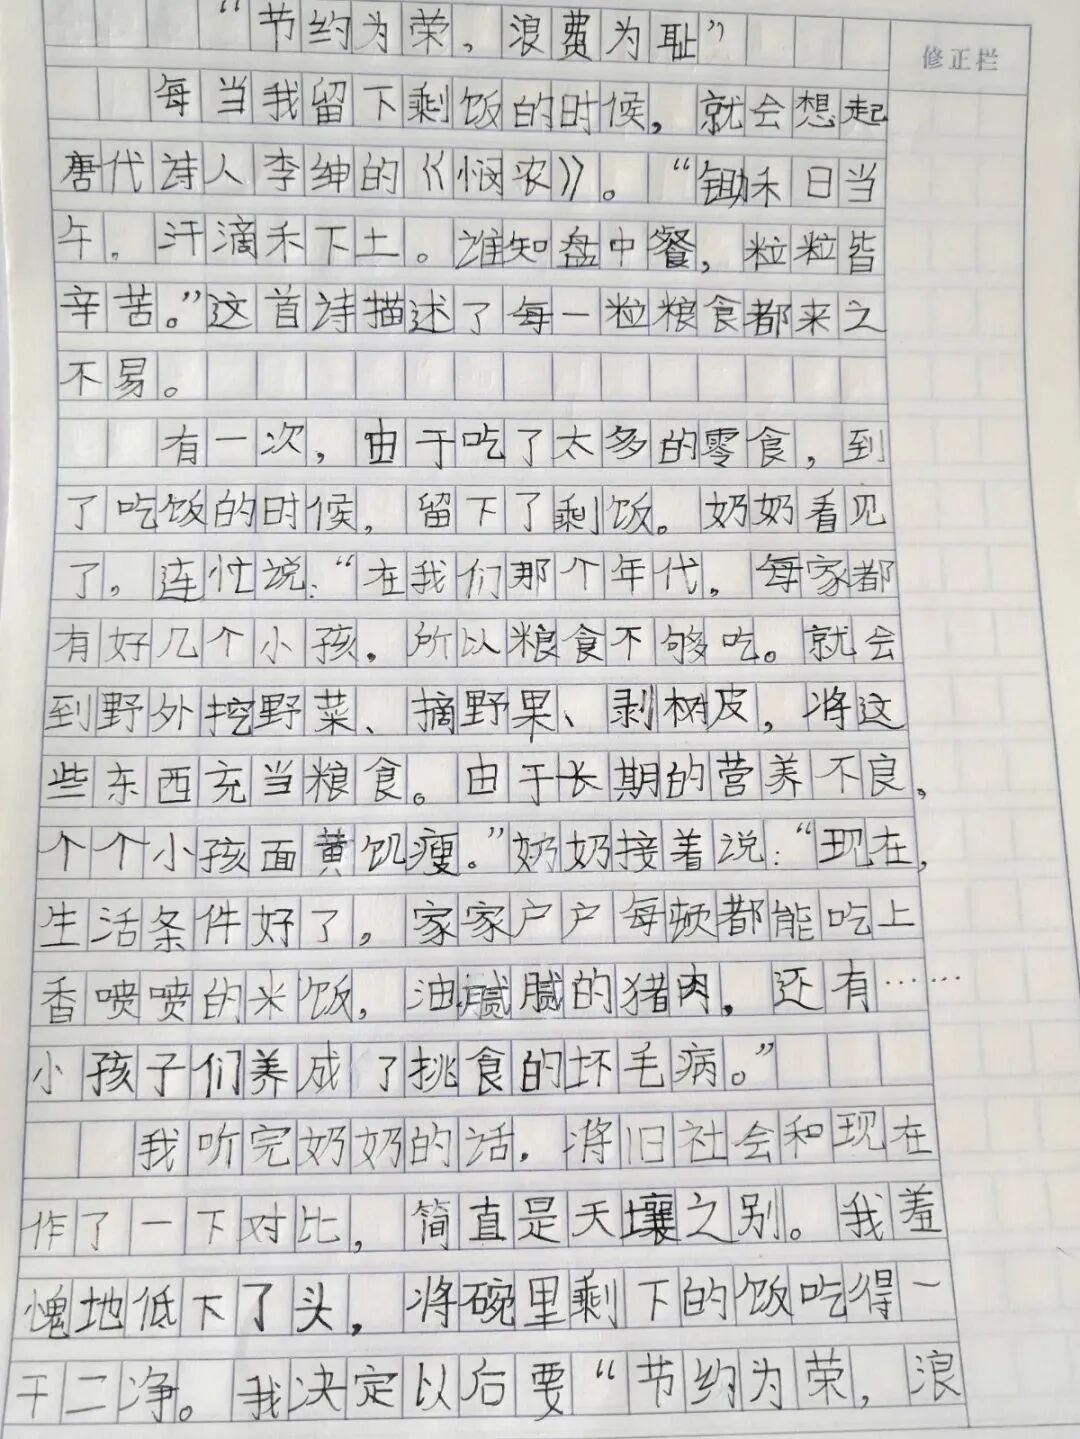 “节约为荣，浪费为耻”
修正栏
每当我留下剩饭的时候，就会想起
唐代诗人李绅的《悯农》。“锄禾日当
午，汗滴禾下土。谁知盘中餐，粒粒皆
辛苦。”这首诗描述了每一粒粮食都来之
不易。
有一次，由于吃了太多的零食，到
了吃饭的时候，留下了剩饭。奶奶看见
了，连忙说：“在我们那个年代，每家都
有好几个小孩，所以粮食不够吃。就会
到野外挖野菜、摘野果、剥树皮，将这
些东西充当粮食。由于长期的营养不良，
个个小孩面黄饥瘦。”奶奶接着说：“现在，
生活条件好了，家家户户每顿都能吃上
香喷喷的米饭，油腻腻的猪肉，还有……
小孩子们养成了挑食的坏毛病。”
我听完奶奶的话，将旧社会和现在
作了一下对比，简直是天壤之别。我羞
愧地低下了头，将碗里剩下的饭吃得一
干二净。我决定以后要“节约为荣，浪